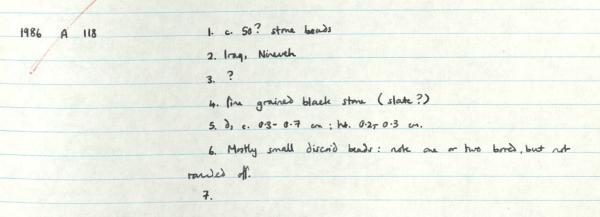 1986 A 118
1. c. 50? stone beads
2. Iraq, Nineveh
3. ?
4. Fine grained black stone (slate?)
5. d, c. 0.3 - 0.7 cm ; ht. 0.2, 0.3 cm.
6. Mostly small discoid beads : note one or two bored, but not
rounded off.
7.